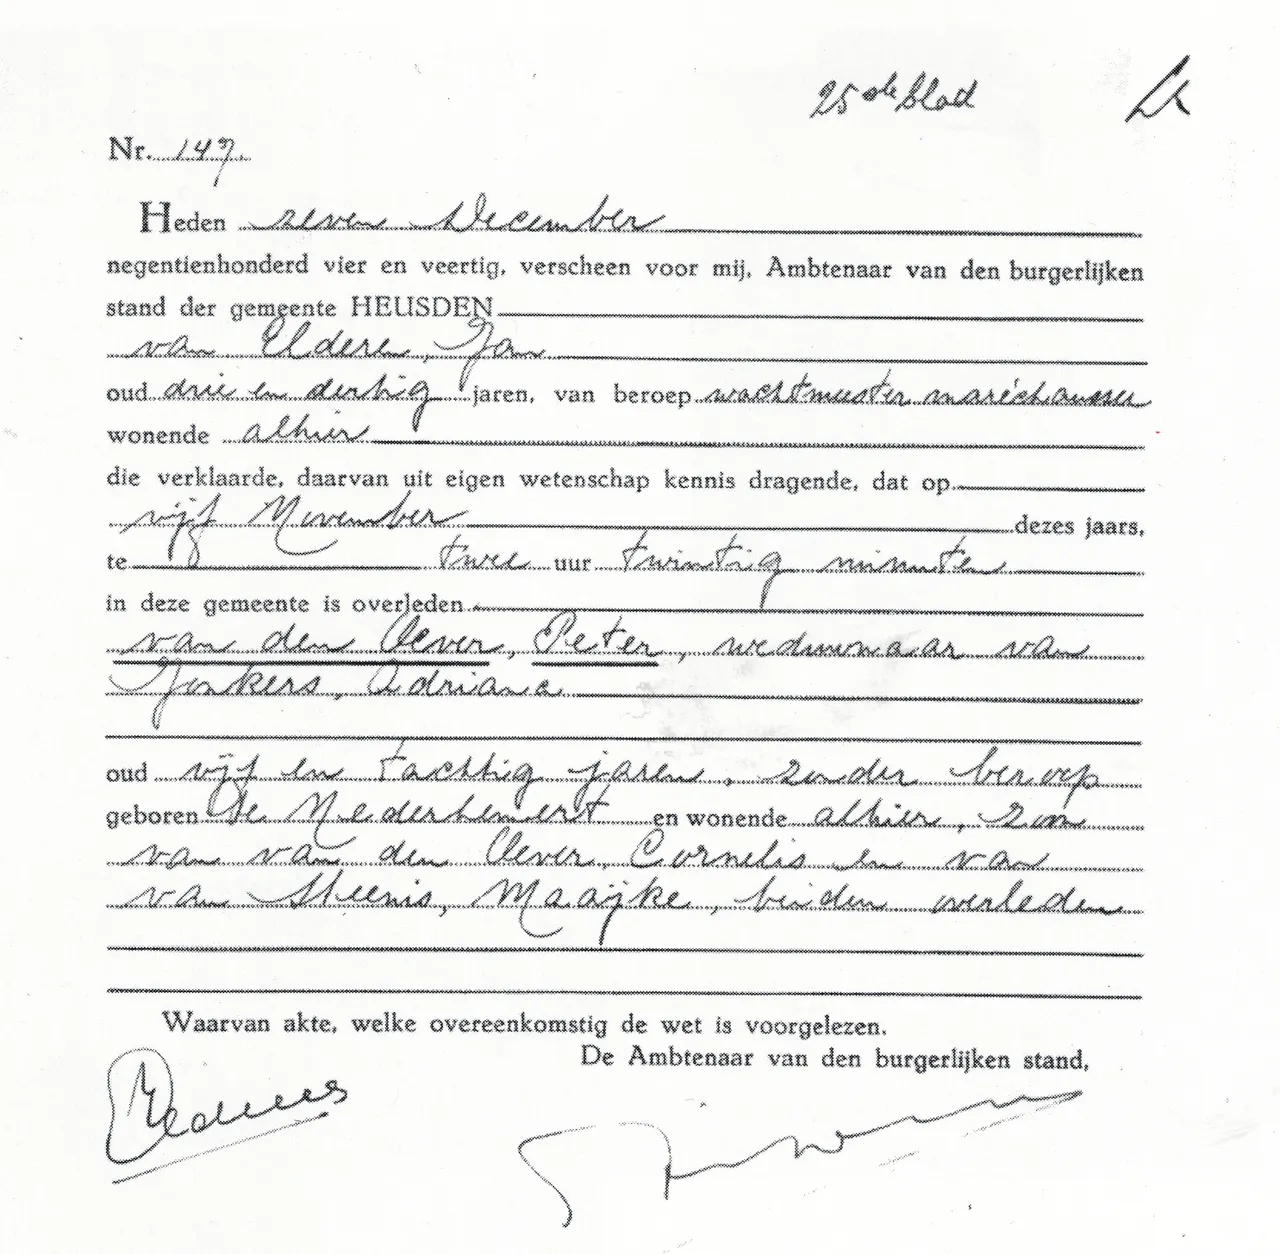 25ste blad
Nr. 147.
Heden zeven December
negentienhonderd vier en veertig, verscheen voor mij, Ambtenaar van den burgerlijken
stand der gemeente HEUSDEN
van Elderen, Jan
oud drie en dertig jaren, van beroep wachtmeester maréchaussee
wonende alhier
die verklaarde, daarvan uit eigen wetenschap kennis dragende, dat op
vijf November dezes jaars,
te twee uur twintig minuten
in deze gemeente is overleden
van den Oever, Peter, weduwnaar van
Jonkers, Adriana
oud vijf en tachtig jaren, zonder beroep
geboren te Nederhemert en wonende alhier, zoon
van van den Oever, Cornelis en van
van Steenis, Maaijke, beiden overleden
Waarvan akte, welke overeenkomstig de wet is voorgelezen.
De Ambtenaar van den burgerlijken stand,